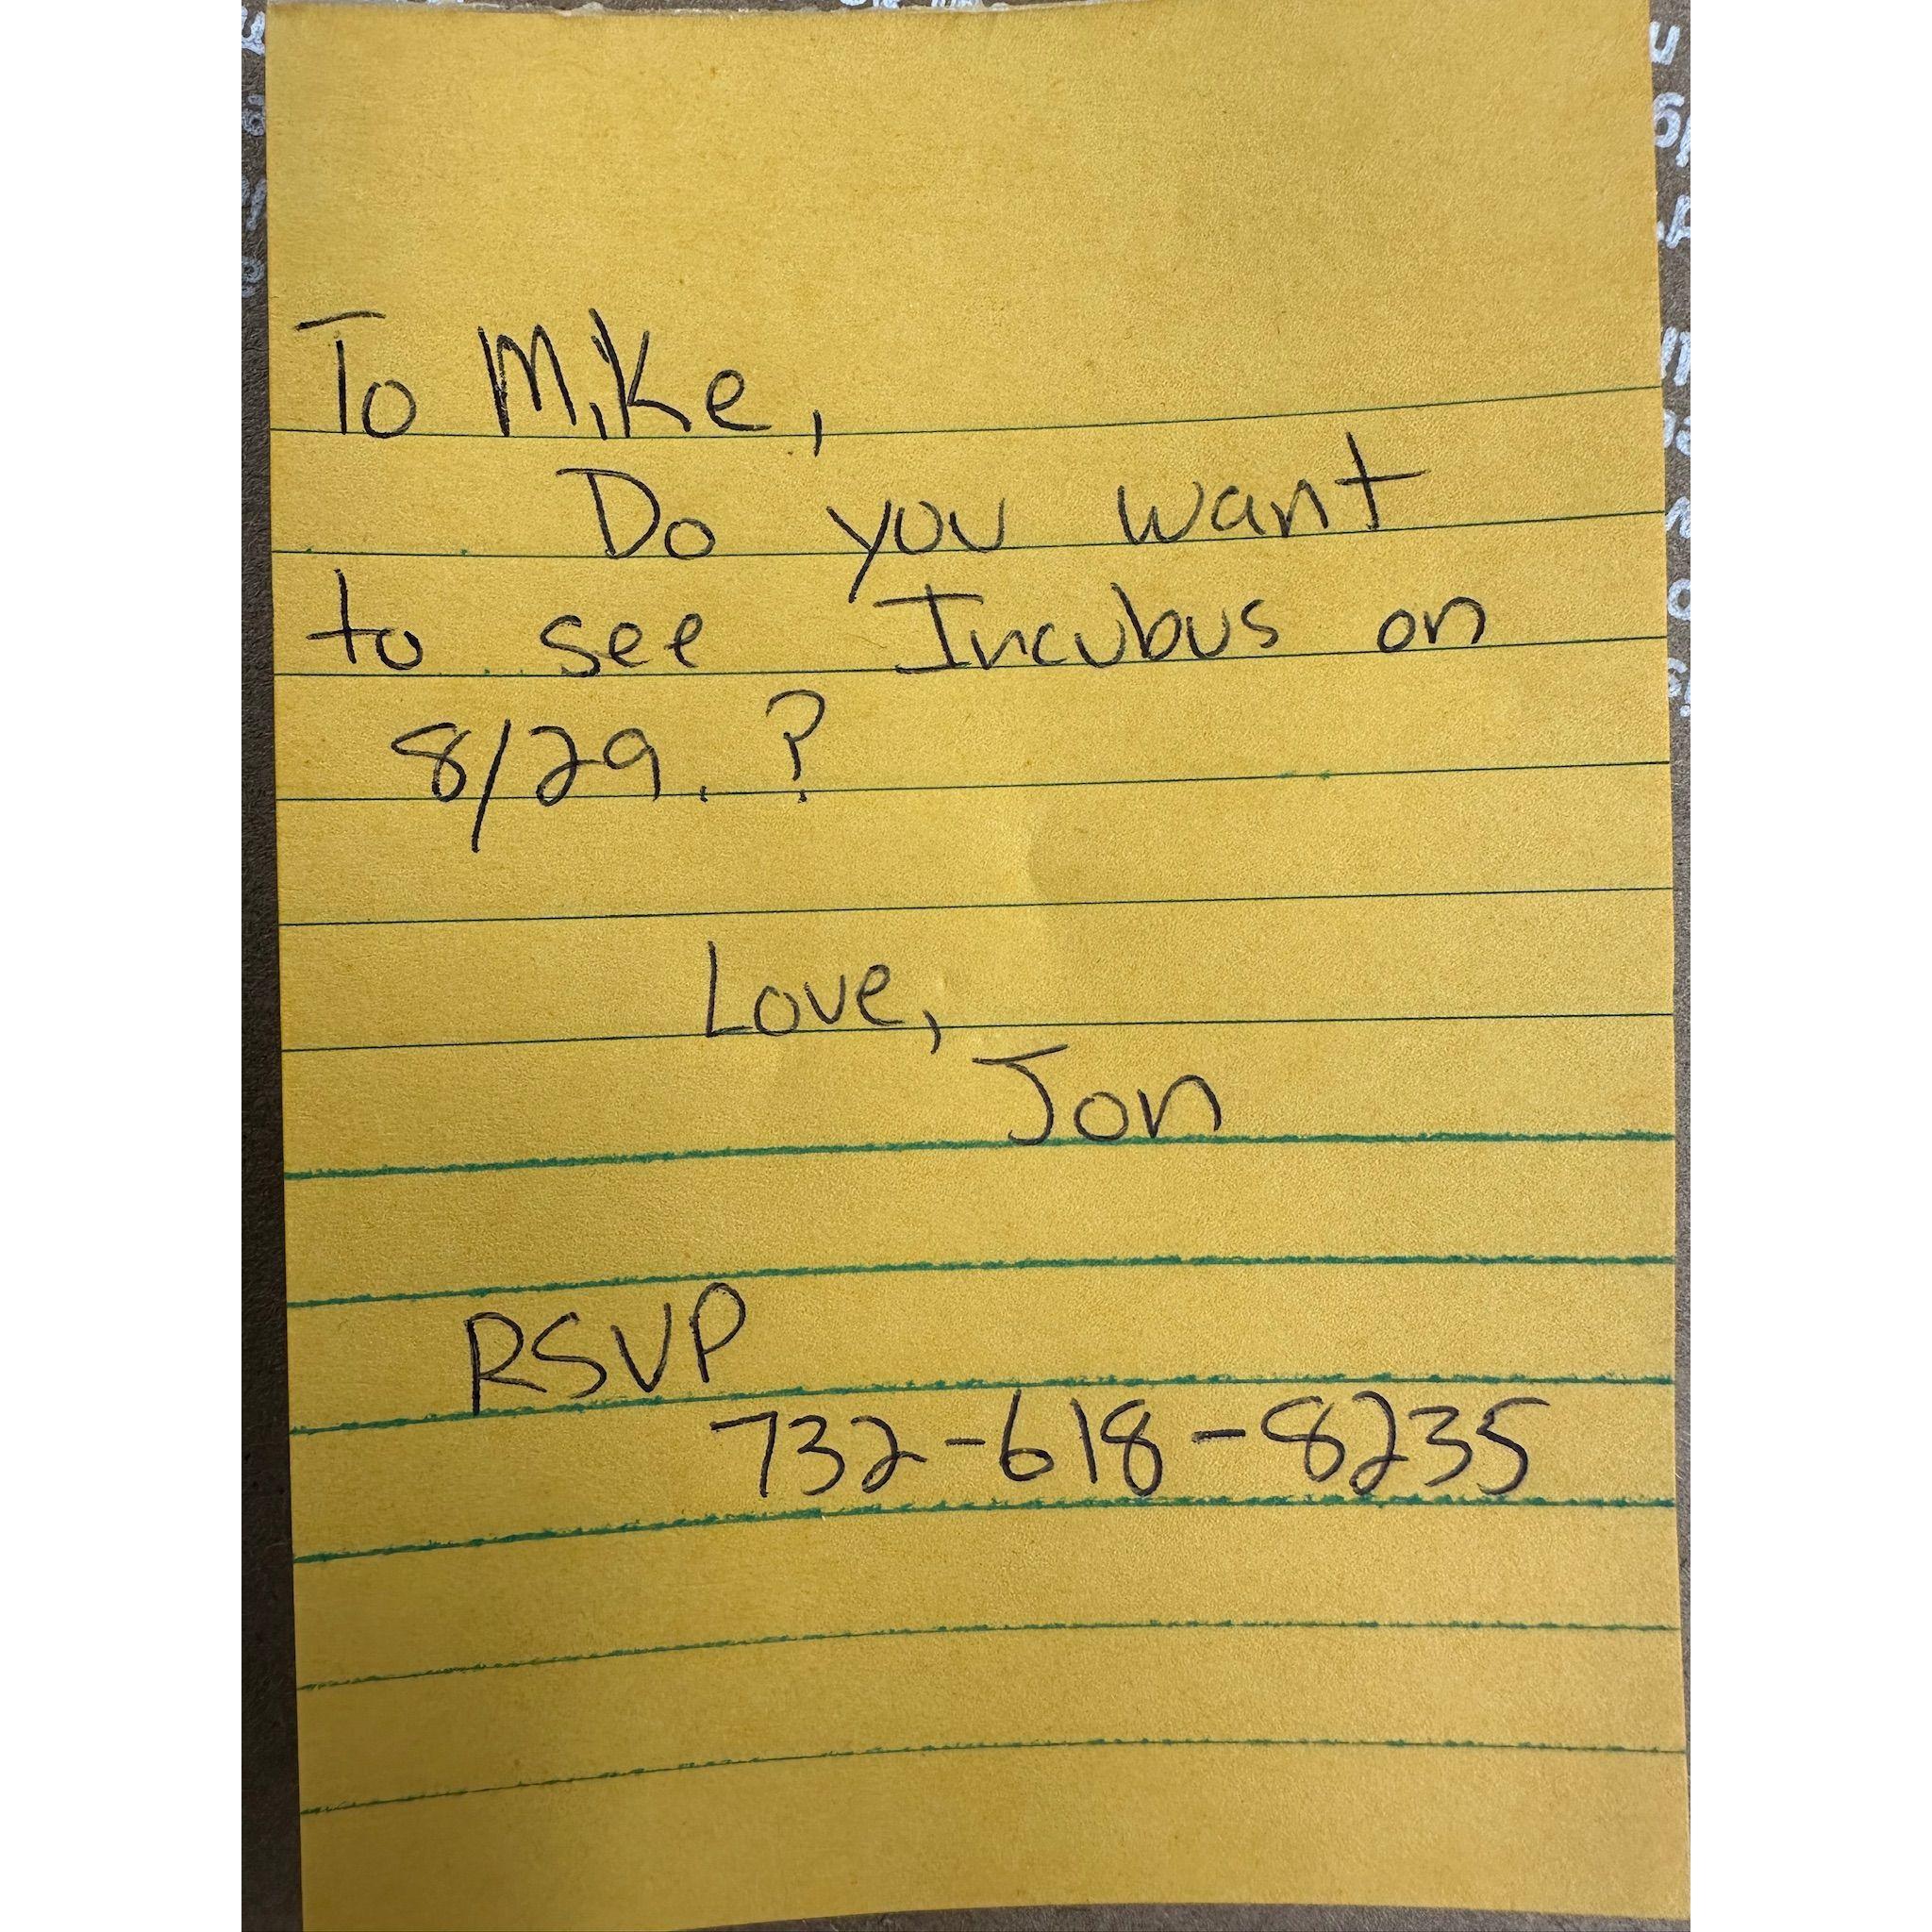 To Mike,
Do you want
to see Incubus on
8/29. ?
Love,
Jon
RSVP
732-618-8235